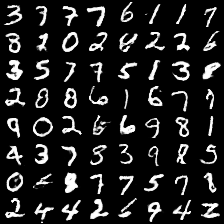 3 7 7 7 6 1 1 7
8 2 0 2 4 2 2 6
3 5 7 7 5 1 3 8
2 8 8 6 1 6 7 7
9 0 2 6 6 9 8 1
4 3 7 3 3 9 8 5
0 8 7 7 5 7 8
2 4 4 2 6 9 4 2